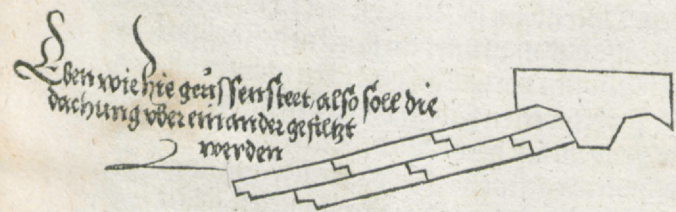 Eben wie hie geryssen steet, also soll die
dachung vber einander gefültzt
werden